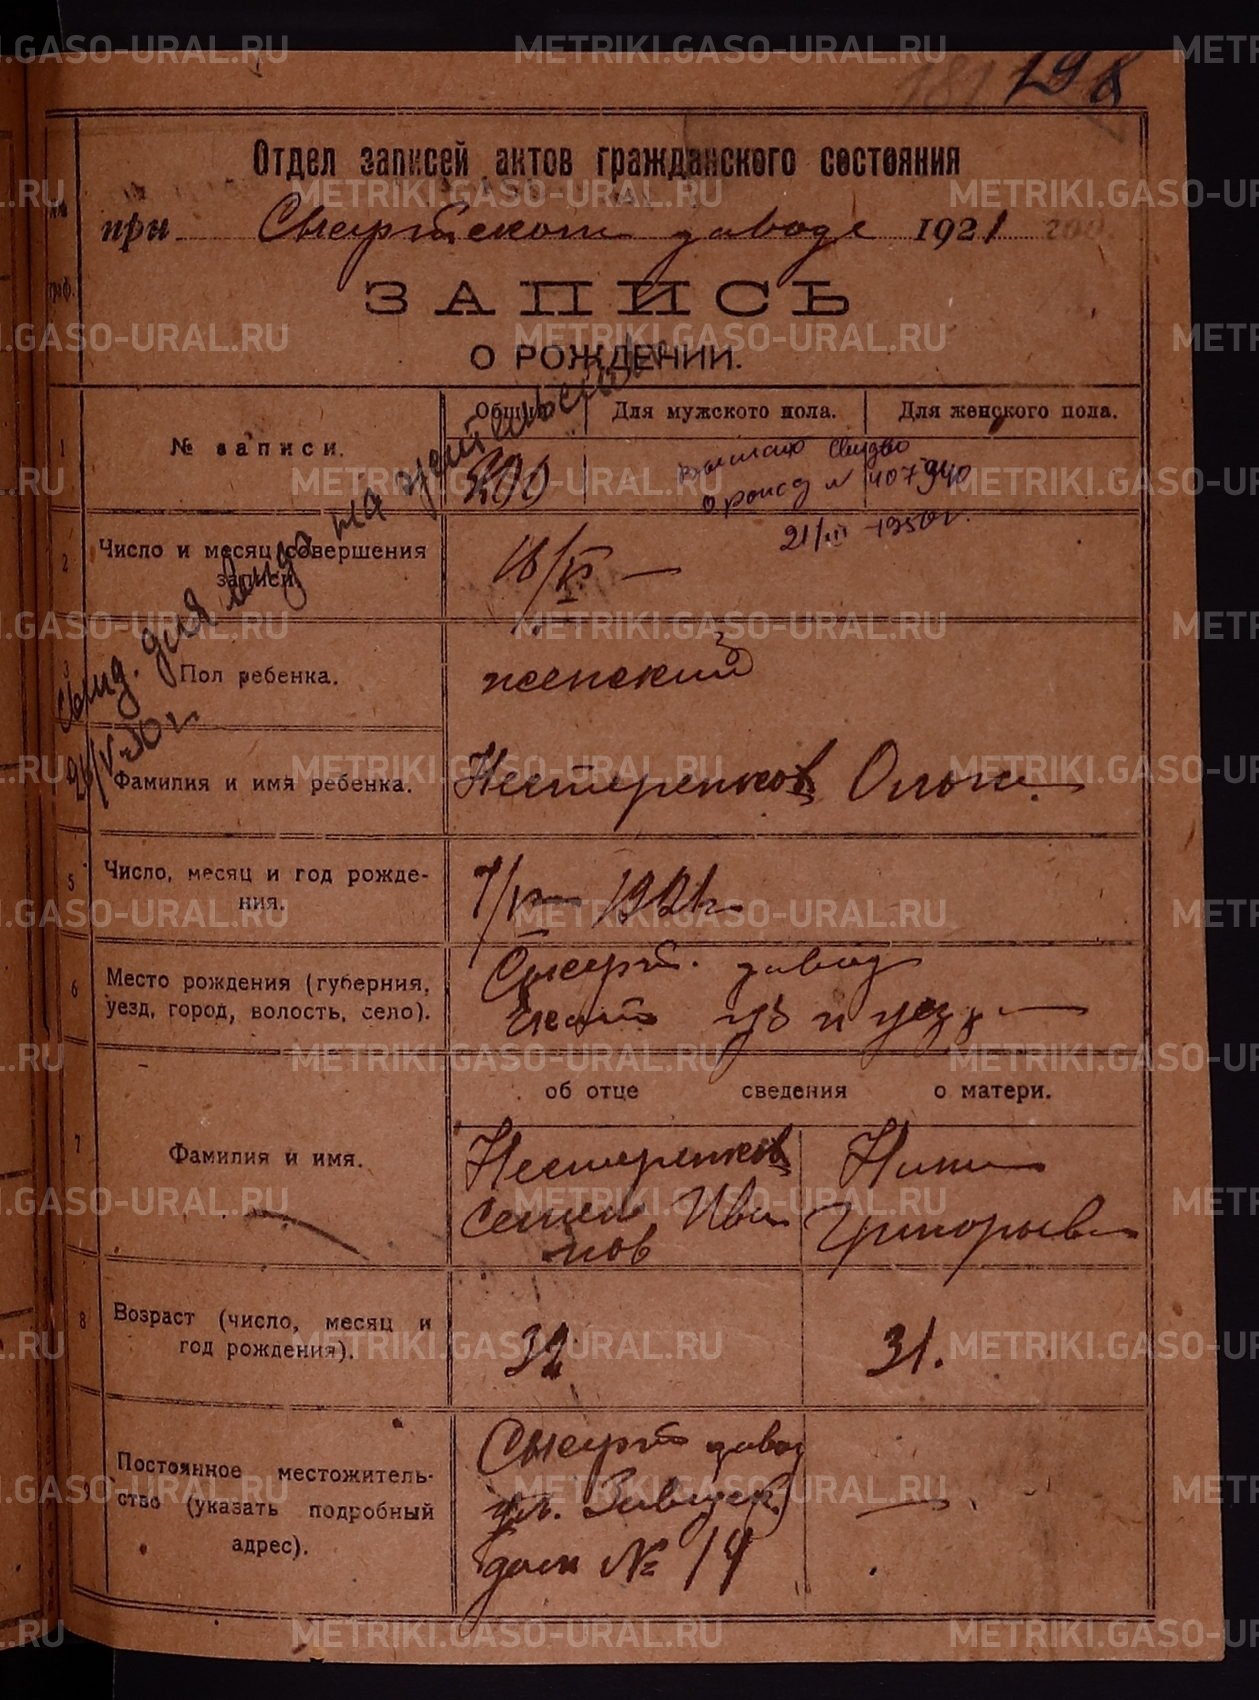 198
Отдел записей актов гражданского состояния
при Сысертском заводе 1921 год.
ЗАПИСЬ
О РОЖДЕНИИ.
1
№ записи.
Общий
Для мужского пола.
Для женского пола.
200
о рожд № 407940
21/III 1950 г.
2
Число и месяц совершения
записи.
18/VI —
3
Пол ребенка.
женский
выд. для
Фамилия и имя ребенка.
Нестеренков Ольга.
5
Число, месяц и год рожде-
ния.
1921 г.
6
Место рождения (губерния,
уезд, город, волость, село).
Сысерт. завод
Екат губ и уезд —
об отце сведения о матери.
7
Фамилия и имя.
Нестеренков
Семен Ива
нов
Нина
Григорьев
8
Возраст (число, месяц и
год рождения).
32
31.
9
Постоянное местожитель-
ство (указать подробный
адрес).
Сысерт завод
ул.
дом № 14
—
METRIKI.GASO-URAL.RU